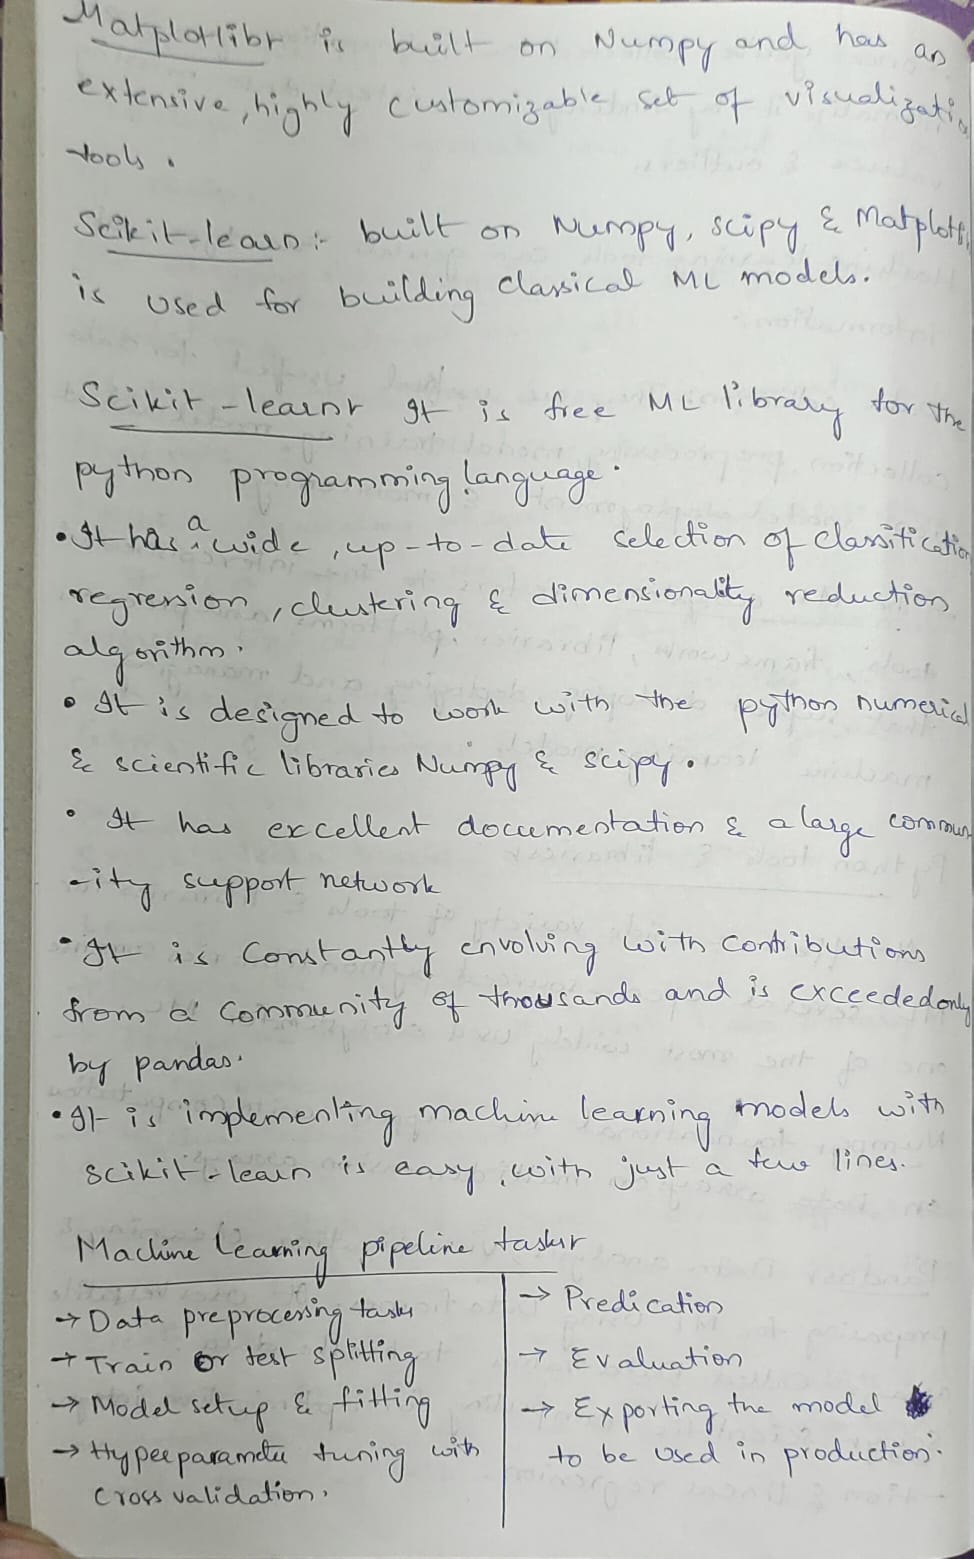 Matplotlib: is built on Numpy and has an
extensive, highly customizable set of visualizatio
tools.
Scikit-learn:- built on Numpy, scipy & Matplotli
is used for building classical ML models.
Scikit-learn: It is free ML library for the
python programming language.
• It has a wide, up-to-date selection of classification
regression, clustering & dimensionality reduction
algorithm.
• It is designed to work with the python numerical
& scientific libraries Numpy & scipy.
• It has excellent documentation & a large commun
-ity support network
• It is constantly envolving with contributions
from a community of thousands and is exceeded only
by pandas.
• It is implementing machine learning models with
scikit-learn is easy, with just a few lines.
Machine learning pipeline tasks:
→ Data preprocessing tasks
→ Train or test splitting
→ Model setup & fitting
→ Hyperparameter tuning with
cross validation.
→ Predication
→ Evaluation
→ Exporting the model
to be used in production.